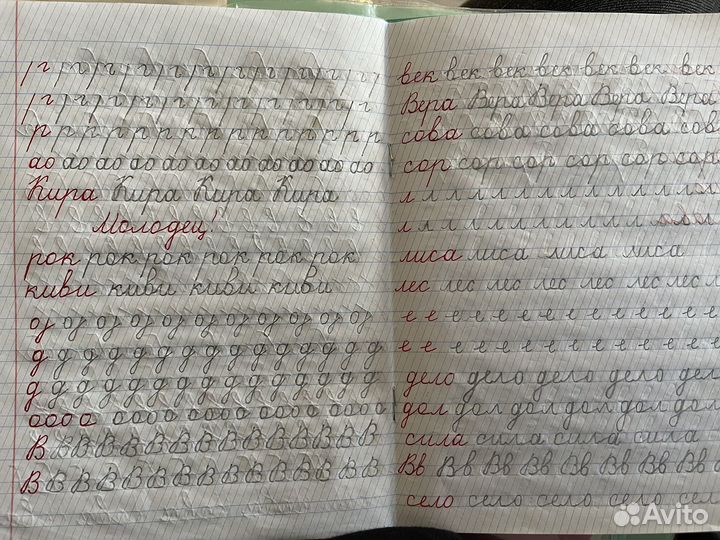 р р р р р р р р р р р р р р
ао ао ао ао ао ао ао ао ао ао ао
Кира Кира Кира Кира
Молодец!
рок рок рок рок рок рок
киви киви киви киви
д д д д д д д д д д д д д д д д
д д д д д д д д д д д д д д д д
оооо оооо оооо оооо оооо
В В В В В В В В В В В В В В
В В В В В В В В В В В В В В
век век век век век век век
Вера Вера Вера Вера Вера
сова сова сова сова сов
сор сор сор сор сор сор
л л л л л л л л л л л л л л
л л л л л л л л л л л
лиса лиса лиса лиса
лес лес лес лес лес лес лес
е е е е е е е е е е е е е е
е е е е е е е е е е е е е е
дело дело дело дело дел
дол дол дол дол дол дол
сила сила сила сила
Вв Вв Вв Вв Вв Вв Вв Вв
село село село село сел
Avito